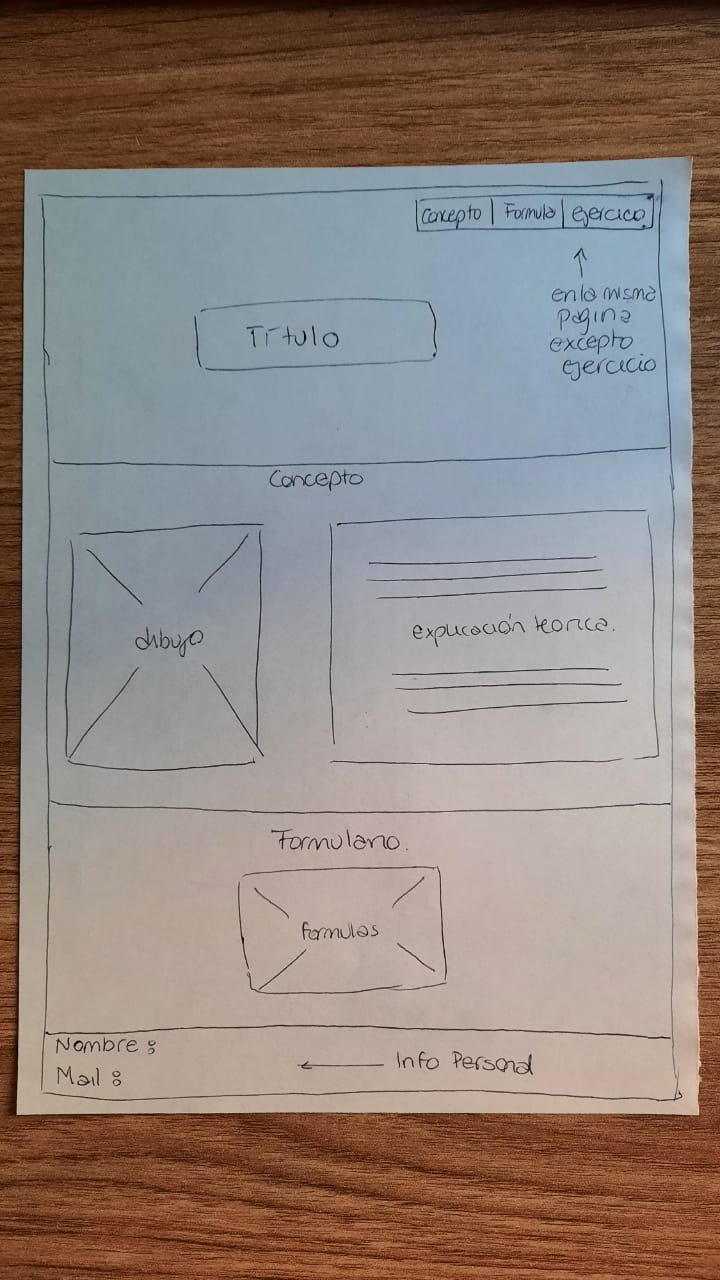 Concepto Formula ejercicio
en la misma
pagina
excepto
ejercicio
Título
Concepto
dibujo
explicación teorica.
Formulario.
formulas
Nombre:
Mail:
Info Personal